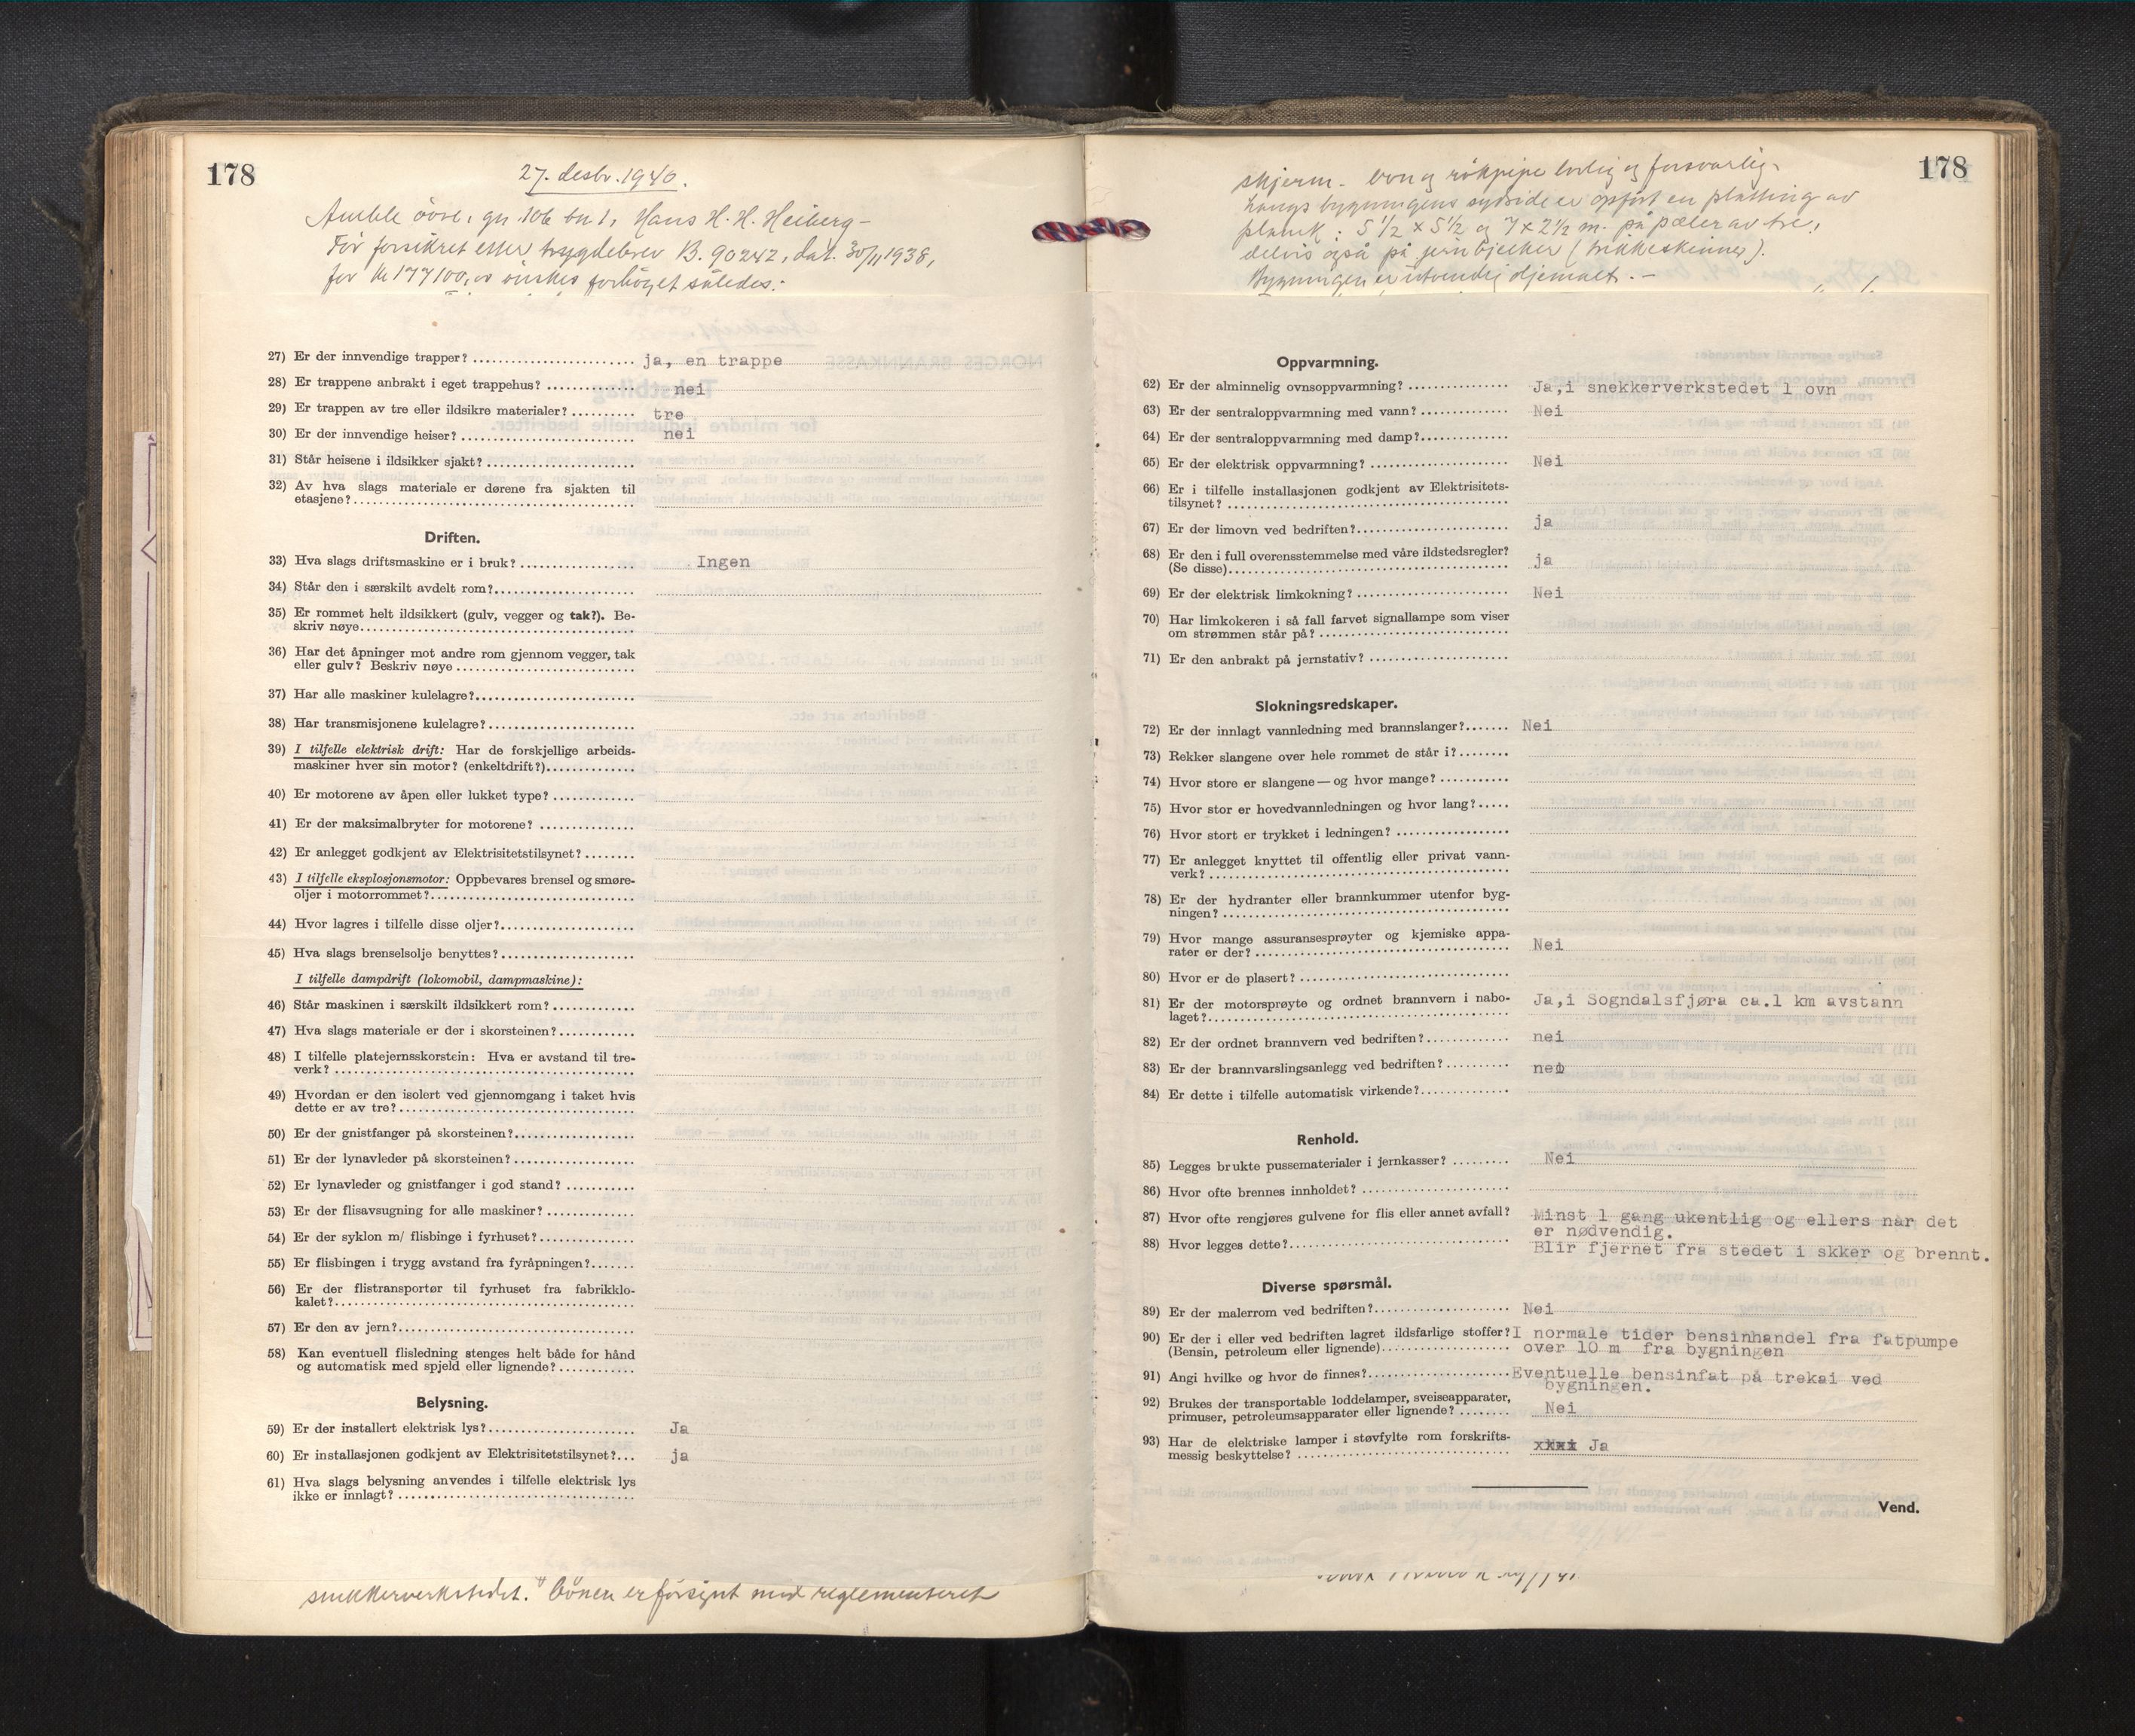 178
27. desbr. 1940.
Amble övre, gn 106 bn 1, Hans H. H. Heiberg –
Før forsikret etter trygdebrev B. 90242, dat. 30/11 1938,
for kr 177100, ønskes forhöget således:
27) Er der innvendige trapper? ja, en trappe
28) Er trappene anbrakt i eget trappehus? nei
29) Er trappen av tre eller ildsikre materialer? tre
30) Er der innvendige heiser? nei
31) Står heisene i ildsikker sjakt?
32) Av hva slags materiale er dørene fra sjakten til
etasjene?
Driften.
33) Hva slags driftsmaskine er i bruk? Ingen
34) Står den i særskilt avdelt rom?
35) Er rommet helt ildsikkert (gulv, vegger og tak?). Be-
skriv nøye
36) Har det åpninger mot andre rom gjennom vegger, tak
eller gulv? Beskriv nøye
37) Har alle maskiner kulelagre?
38) Har transmisjonene kulelagre?
39) I tilfelle elektrisk drift: Har de forskjellige arbeids-
maskiner hver sin motor? (enkeltdrift?)
40) Er motorene av åpen eller lukket type?
41) Er der maksimalbryter for motorene?
42) Er anlegget godkjent av Elektrisitetstilsynet?
43) I tilfelle eksplosjonsmotor: Oppbevares brensel og smøre-
oljer i motorrommet?
44) Hvor lagres i tilfelle disse oljer?
45) Hva slags brenselsolje benyttes?
I tilfelle dampdrift (lokomobil, dampmaskine):
46) Står maskinen i særskilt ildsikkert rom?
47) Hva slags materiale er der i skorsteinen?
48) I tilfelle platejernsskorstein: Hva er avstand til tre-
verk?
49) Hvordan er den isolert ved gjennomgang i taket hvis
dette er av tre?
50) Er der gnistfanger på skorsteinen?
51) Er der lynavleder på skorsteinen?
52) Er lynavleder og gnistfanger i god stand?
53) Er der flisavsugning for alle maskiner?
54) Er der syklon m/ flisbinge i fyrhuset?
55) Er flisbingen i trygg avstand fra fyråpningen?
56) Er der flistransportør til fyrhuset fra fabrikklo-
kalet?
57) Er den av jern?
58) Kan eventuell flisledning stenges helt både for hånd
og automatisk med spjeld eller lignende?
Belysning.
59) Er der installert elektrisk lys? Ja
60) Er installasjonen godkjent av Elektrisitetstilsynet? ja
61) Hva slags belysning anvendes i tilfelle elektrisk lys
ikke er innlagt?
snekkerverkstedet." Ovnen er försynt med reglementeret
178
skjerm – ovn og rökpipe lovlig og forsvarlig –
Langs bygningens sydside er opfört en platting av
plank: 5 1/2 x 5 1/2 og 7 x 2 1/2 m. på pæler av tre,
delvis også på jernbjelker (trikkeskinner).
Bygningen er utvendig oljemalt. –
Oppvarmning.
62) Er der alminnelig ovnsoppvarmning? Ja,i snekkerverkstedet 1 ovn
63) Er der sentraloppvarmning med vann? Nei
64) Er der sentraloppvarmning med damp?
65) Er der elektrisk oppvarmning? Nei
66) Er i tilfelle installasjonen godkjent av Elektrisitets-
tilsynet?
67) Er der limovn ved bedriften? ja
68) Er den i full overensstemmelse med våre ildstedsregler?
(Se disse) ja
69) Er der elektrisk limkokning? Nei
70) Har limkokeren i så fall farvet signallampe som viser
om strømmen står på?
71) Er den anbrakt på jernstativ?
Slokningsredskaper.
72) Er der innlagt vannledning med brannslanger? Nei
73) Rekker slangene over hele rommet de står i?
74) Hvor store er slangene — og hvor mange?
75) Hvor stor er hovedvannledningen og hvor lang?
76) Hvor stort er trykket i ledningen?
77) Er anlegget knyttet til offentlig eller privat vann-
verk?
78) Er der hydranter eller brannkummer utenfor byg-
ningen?
79) Hvor mange assuransesprøyter og kjemiske appa-
rater er der? Nei
80) Hvor er de plasert?
81) Er der motorsprøyte og ordnet brannvern i nabo- Ja,i Sogndalsfjøra ca.1 km avstann
laget?
82) Er der ordnet brannvern ved bedriften? nei
83) Er der brannvarslingsanlegg ved bedriften? nei
84) Er dette i tilfelle automatisk virkende?
Renhold.
85) Legges brukte pussematerialer i jernkasser? Nei
86) Hvor ofte brennes innholdet?
87) Hvor ofte rengjøres gulvene for flis eller annet avfall? Minst 1 gang ukentlig og ellers når det
er nødvendig.
88) Hvor legges dette? Blir fjernet fra stedet i skker og brennt.
Diverse spørsmål.
89) Er der malerrom ved bedriften? Nei
90) Er der i eller ved bedriften lagret ildsfarlige stoffer? I normale tider bensinhandel fra fatpumpe
(Bensin, petroleum eller lignende) over 10 m fra bygningen
91) Angi hvilke og hvor de finnes? Eventuelle bensinfat på trekai ved
bygningen.
92) Brukes der transportable loddelamper, sveiseapparater,
primuser, petroleumsapparater eller lignende? Nei
93) Har de elektriske lamper i støvfylte rom forskrifts-
messig beskyttelse? Ja
Vend.